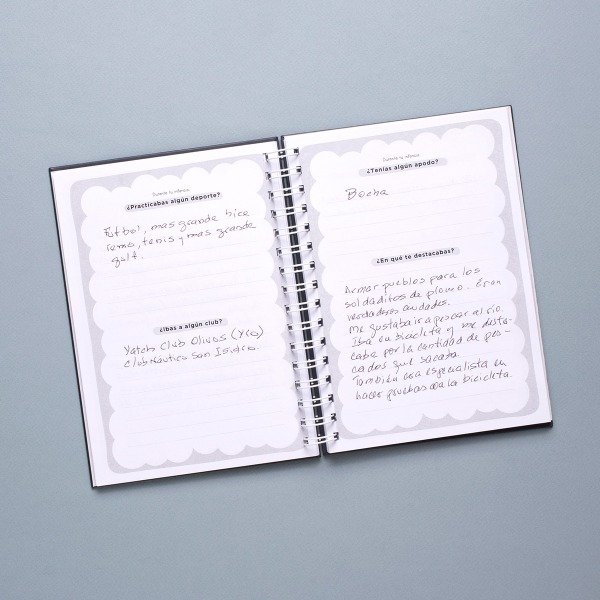 Durante tu infancia
¿Practicabas algún deporte?
Futbol, mas grande hice
remo, tenis y mas grande
golf.
¿Ibas a algún club?
Yatch Club Olivos (YCO)
Club Náutico San Isidro.
Durante tu infancia
¿Tenías algún apodo?
Bocha
¿En qué te destacabas?
Armar pueblos para los
soldaditos de plomo. Eran
verdaderas ciudades.
Me gustaba ir a pescar al río.
Iba en bicicleta y me desta-
caba por la cantidad de pes-
cados que sacaba.
También era especialista en
hacer pruebas con la bicicleta.